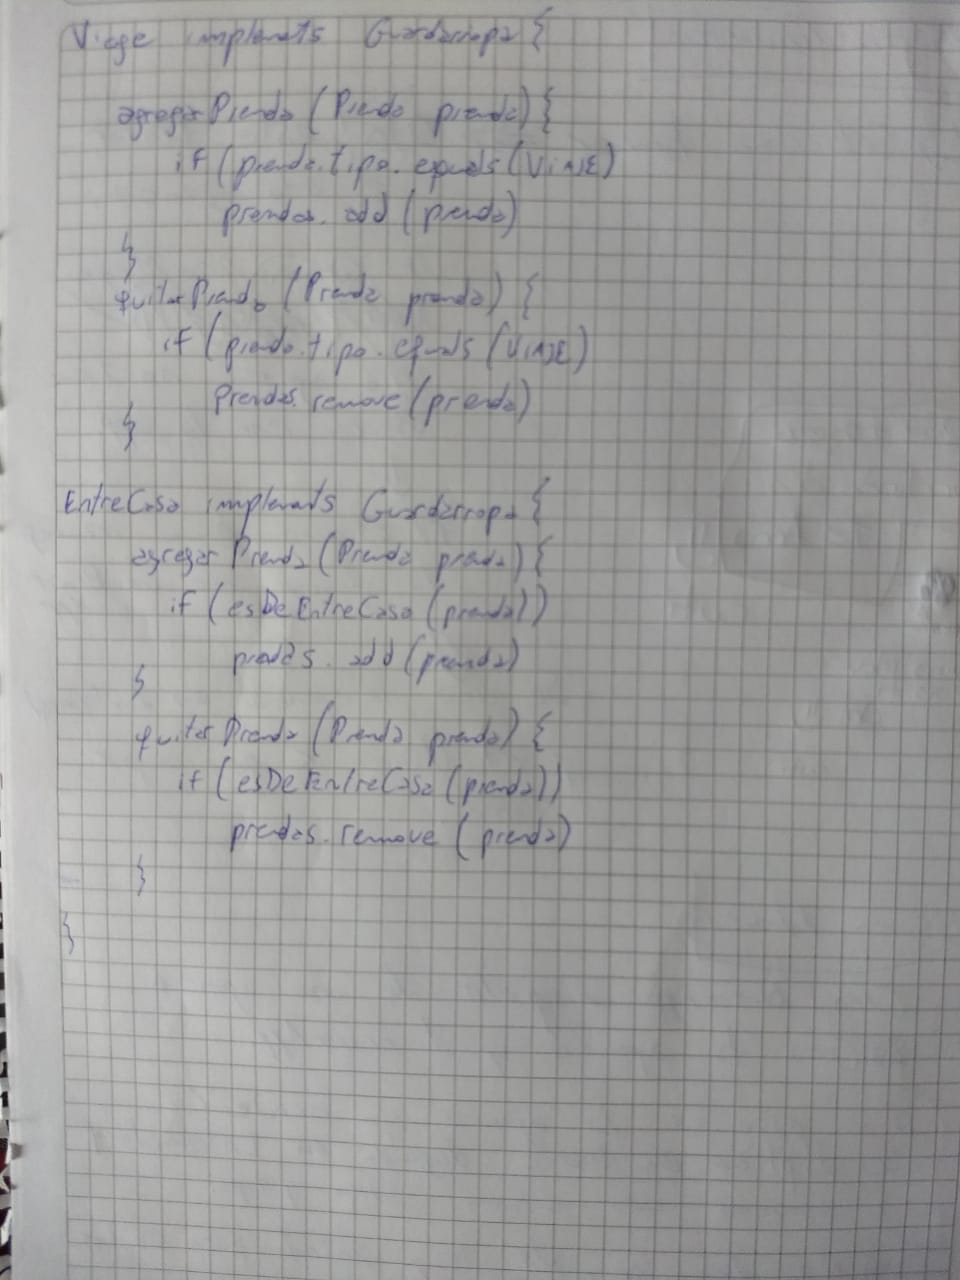 Viage implemts Guardarropa {
agregarPrenda (Prenda prenda) {
if (prenda.tipo.equals (VIAJE)
prendas.add (prenda)
}
quitarPrenda (Prenda prenda) {
if (prenda.tipo.equals (VIAJE)
prendas.remove (prenda)
}
EntreCasa implemats Guardarropa {
agregar Prenda (Prenda prenda) {
if (esDeEntreCasa (prenda))
prendas.add (prenda)
}
quitar Prenda (Prenda prenda) {
if (esDeEntreCasa (prenda))
prendas.remove (prenda)
}
}